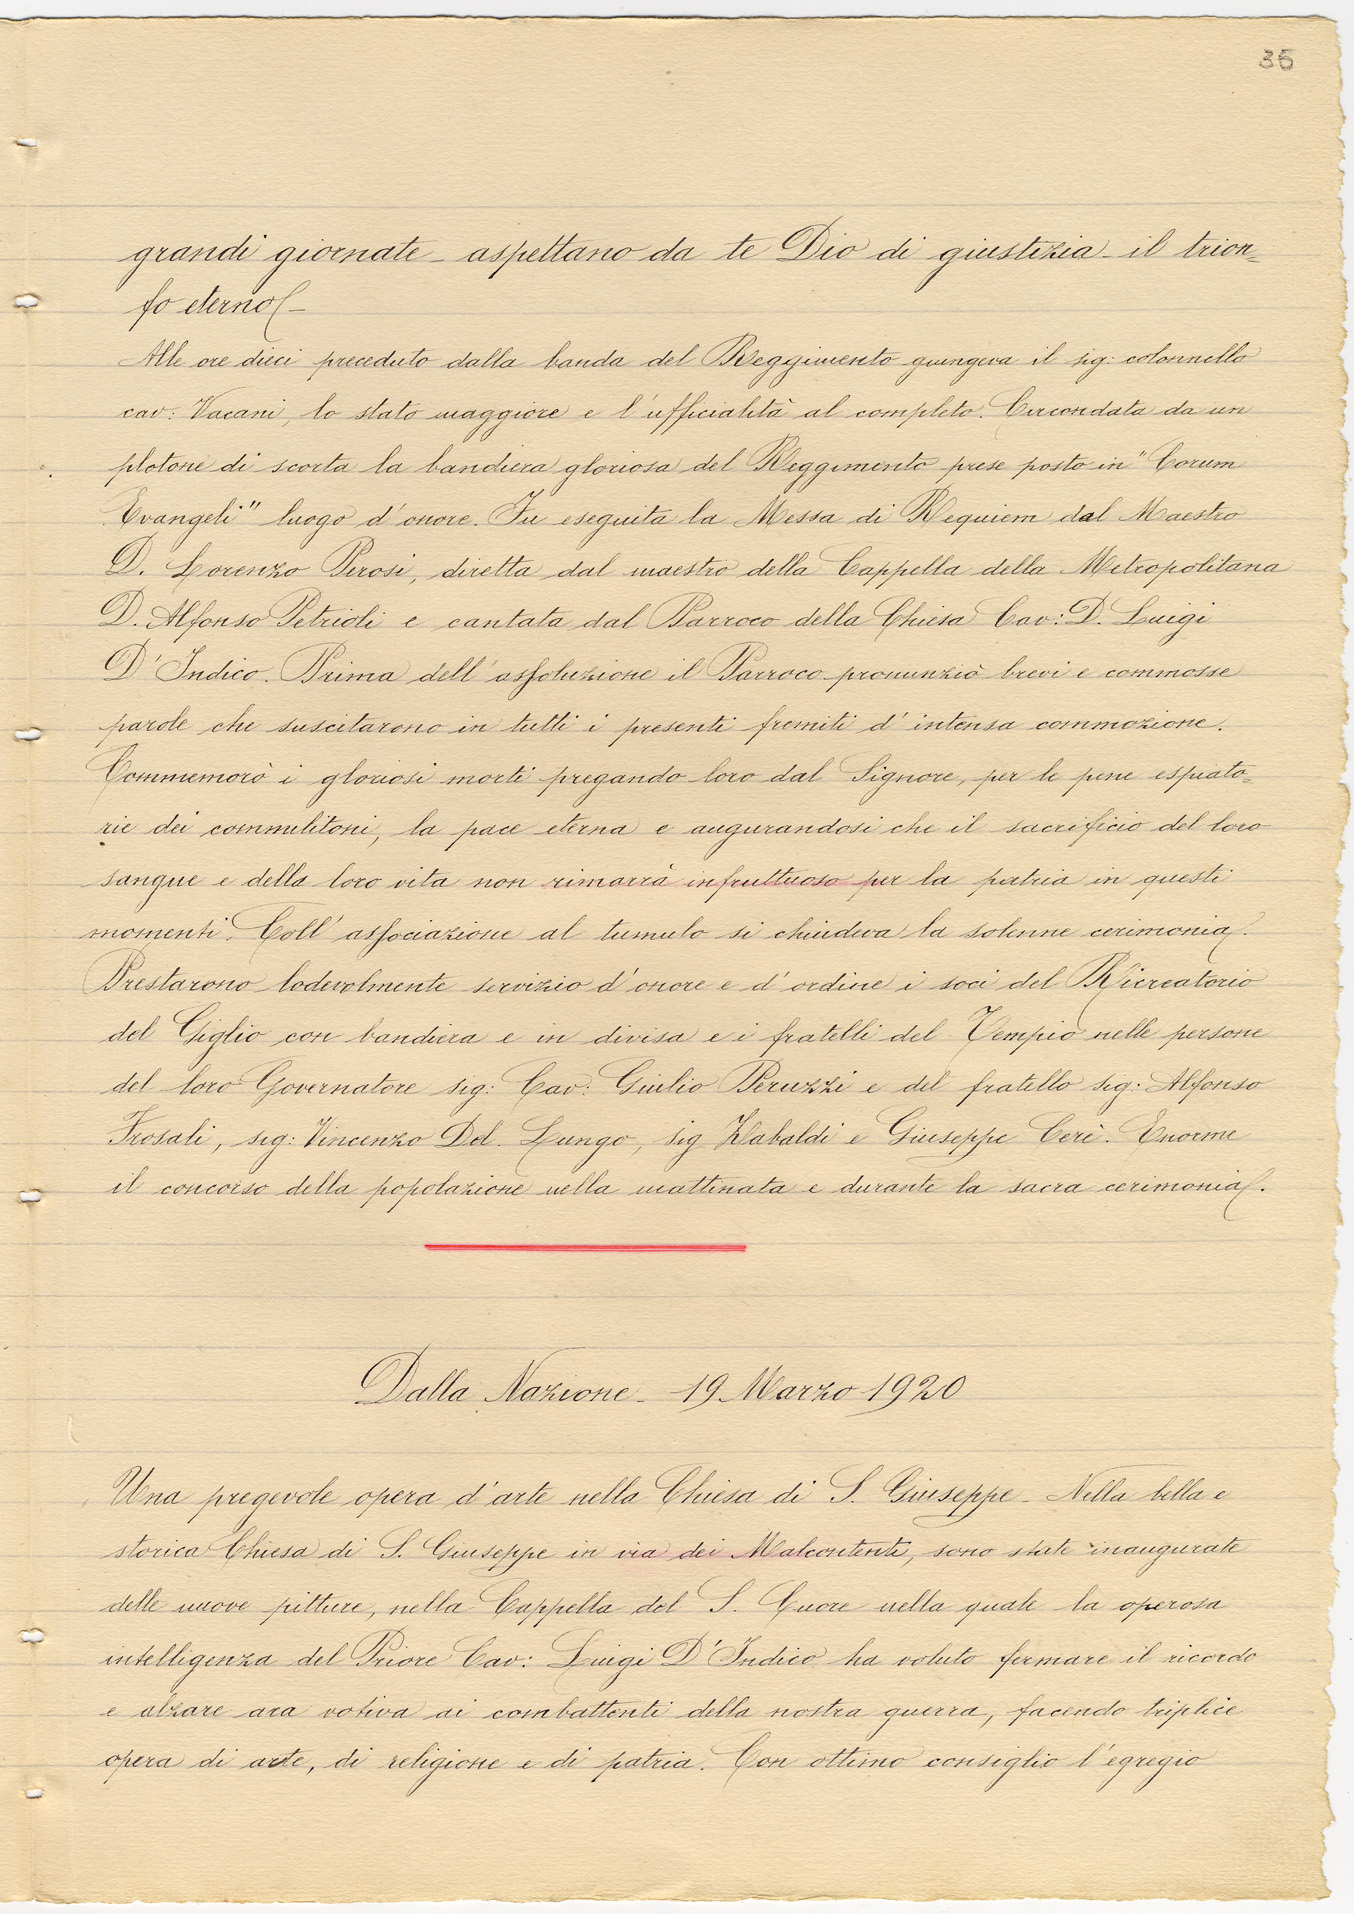 36
grandi giornate - aspettano da te Dio di giustizia - il trion=
fo eterno -
Alle ore dieci preceduto dalla banda del Reggimento giungeva il sig: colonnello
cav: Vacani, lo stato maggiore e l'ufficialità al completo. Circondata da un
plotone di scorta la bandiera gloriosa del Reggimento prese posto in "Corum
Evangeli" luogo d'onore. Fu eseguita la Messa di Requiem dal Maestro
D. Lorenzo Perosi, diretta dal maestro della Cappella della Metropolitana
D. Alfonso Petrioli e cantata dal Parroco della Chiesa Cav: D. Luigi
D'Indico. Prima dell'assoluzione il Parroco pronunziò brevi e commosse
parole che suscitarono in tutti i presenti fremiti d'intensa commozione.
Commemorò i gloriosi morti pregando loro dal Signore, per le pene espiato=
rie dei commilitoni, la pace eterna e augurandosi che il sacrificio del loro
sangue e della loro vita non rimarrà infruttuoso per la patria in questi
momenti. Coll'associazione al tumulo si chiudeva la solenne cerimonia.
Prestarono lodevolmente servizio d'onore e d'ordine i soci del Ricreatorio
del Giglio con bandiera e in divisa e i fratelli del Tempio nelle persone
del loro Governatore sig: Cav: Giulio Peruzzi e del fratello sig: Alfonso
Frosali, sig: Vincenzo Del Lungo, sig Zabaldi e Giuseppe Cerè. Enorme
il concorso della popolazione nella mattinata e durante la sacra cerimonia.
Dalla Nazione - 19 Marzo 1920
Una pregevole opera d'arte nella Chiesa di S. Giuseppe - Nella bella e
storica Chiesa di S. Giuseppe in via dei Malcontenti, sono state inaugurate
delle nuove pitture, nella Cappella del S. Cuore nella quale la operosa
intelligenza del Priore Cav: Luigi D'Indico ha voluto fermare il ricordo
e alzare ara votiva ai combattenti della nostra guerra, facendo triplice
opera di arte, di religione e di patria. Con ottimo consiglio l'egregio